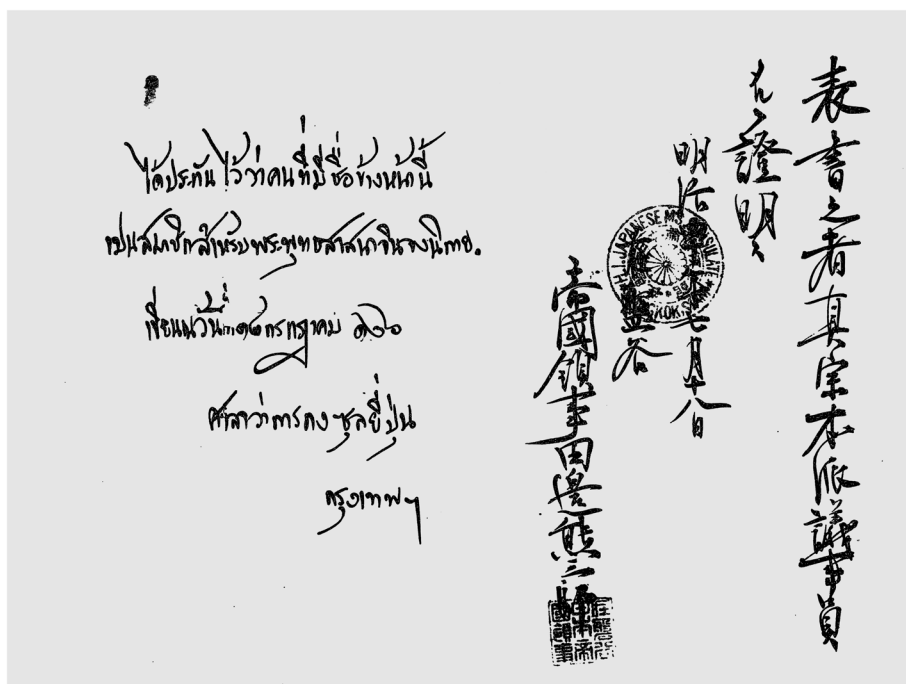 表書之者真宗本派議事員
證明
明治 七月十八日
盤谷
帝國領事田邊熊三郎
H.I. JAPANESE M'S CONSULATE
ได้ประกันไว้ว่าคนที่มีชื่อข้างหน้านี้
เปนสมาชิกสำหรับพระพุทธสาสนาจินจงนิกาย.
เขียนณวันที่ กรกฎาคม ๑๒๐
ศาลาว่าการกงซุลยี่ปุ่น
กรุงเทพฯ